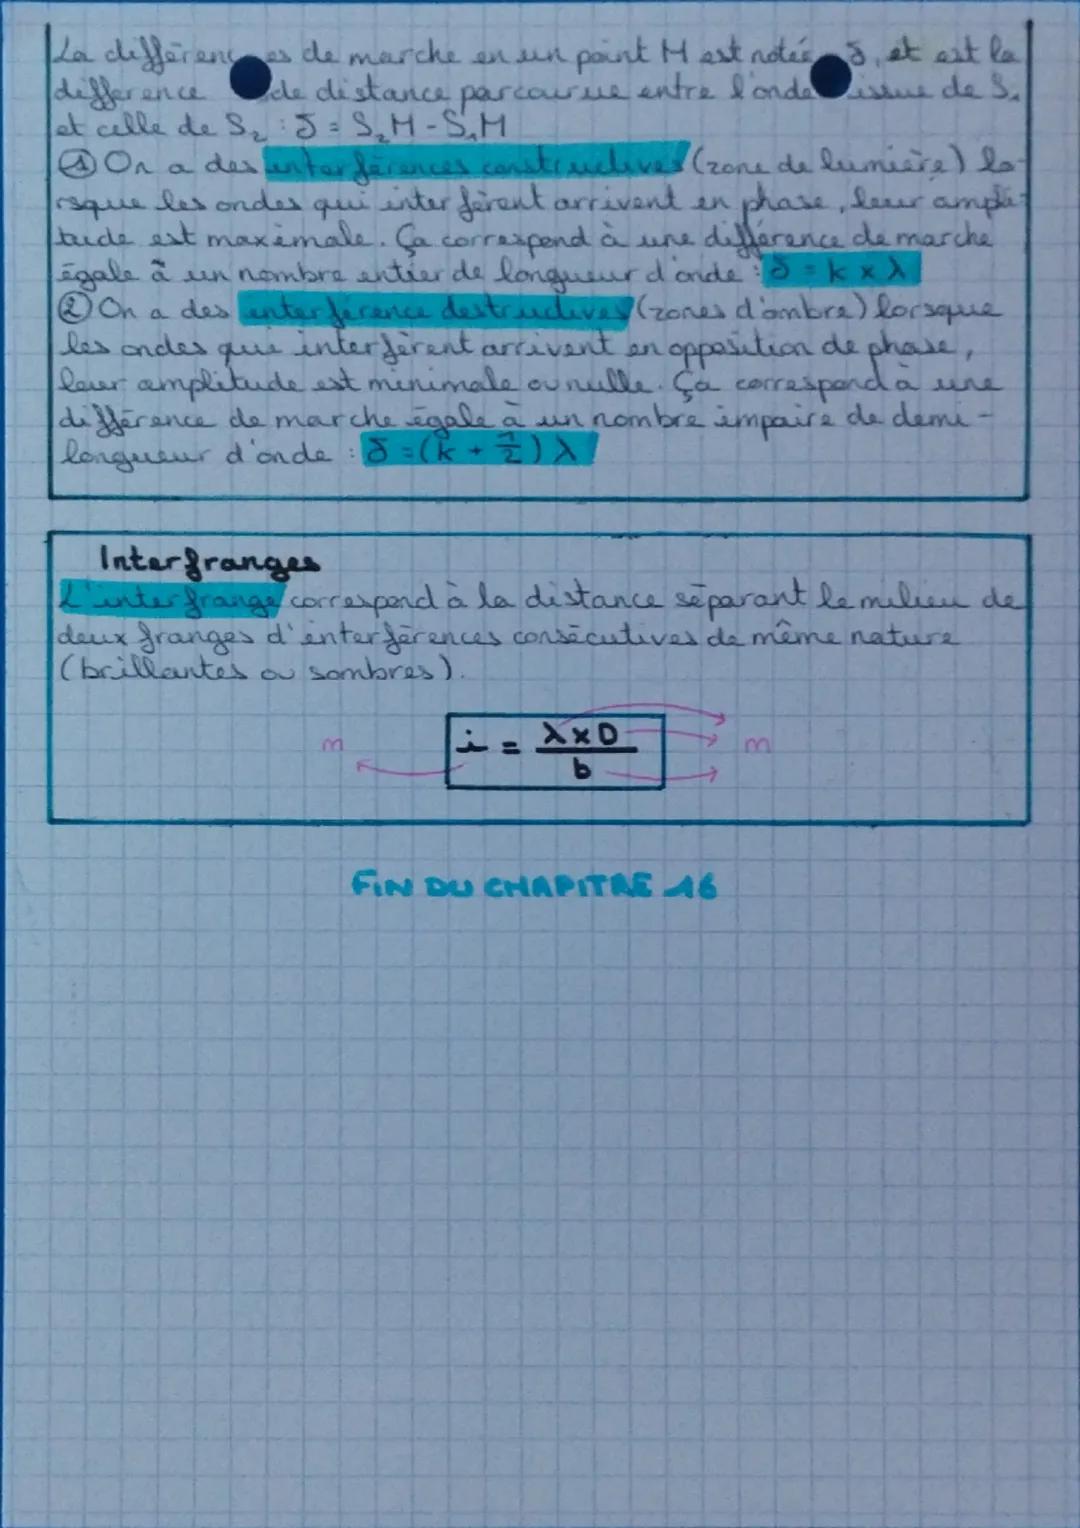 La différences de marche en un point M est notée δ, et est la
difference de distance parcourue entre l'onde issue de S₁
et celle de S₂ : δ = S₂M - S₁M
① On a des interférences constructives (zone de lumière) lo-
rsque les ondes qui interfèrent arrivent en phase, leur ampli-
tude est maximale. Ça correspond à une différence de marche
égale à un nombre entier de longueur d'onde : δ = k x λ
② On a des interférence destructives (zones d'ombre) lorsque
les ondes qui interfèrent arrivent en opposition de phase,
leur amplitude est minimale ou nulle. Ça correspond à une
différence de marche égale à un nombre impaire de demi-
longueur d'onde : δ = (k + 1/2) λ
Interfranges
L'interfrange correspond à la distance séparant le milieu de
deux franges d'interférences consécutives de même nature
(brillantes ou sombres).
m i = λ x D / b m
FIN DU CHAPITRE 16